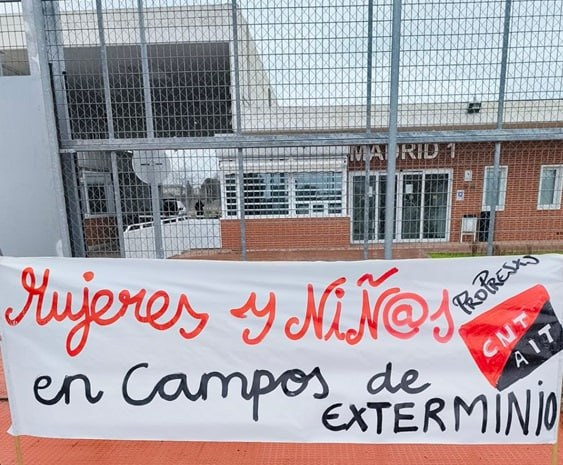 MADRID 1
Mujeres y NiÑ@s
en Campos de
EXTERMINIO
PROPRES@S
CNT
AIT